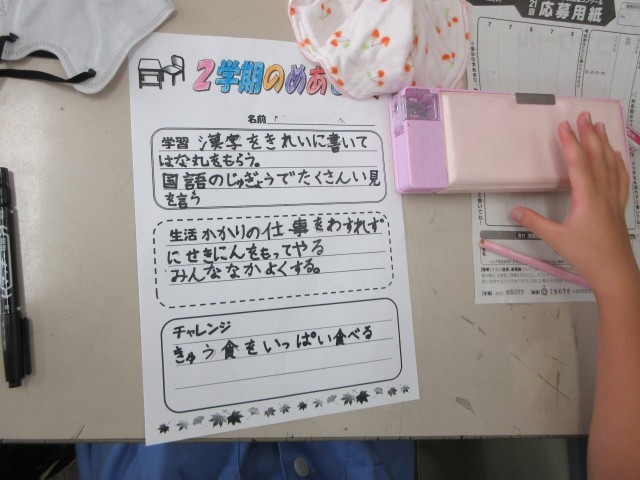 2学期のめあ
名前
学習 漢字をきれいに書いて
はな丸をもらう。
国語のじゅぎょうでたくさんい見
を言う
生活 かかりの仕事をわすれず
にせきにんをもってやる
みんななかよくする。
チャレンジ
きゅう食をいっぱい食べる
応募用紙